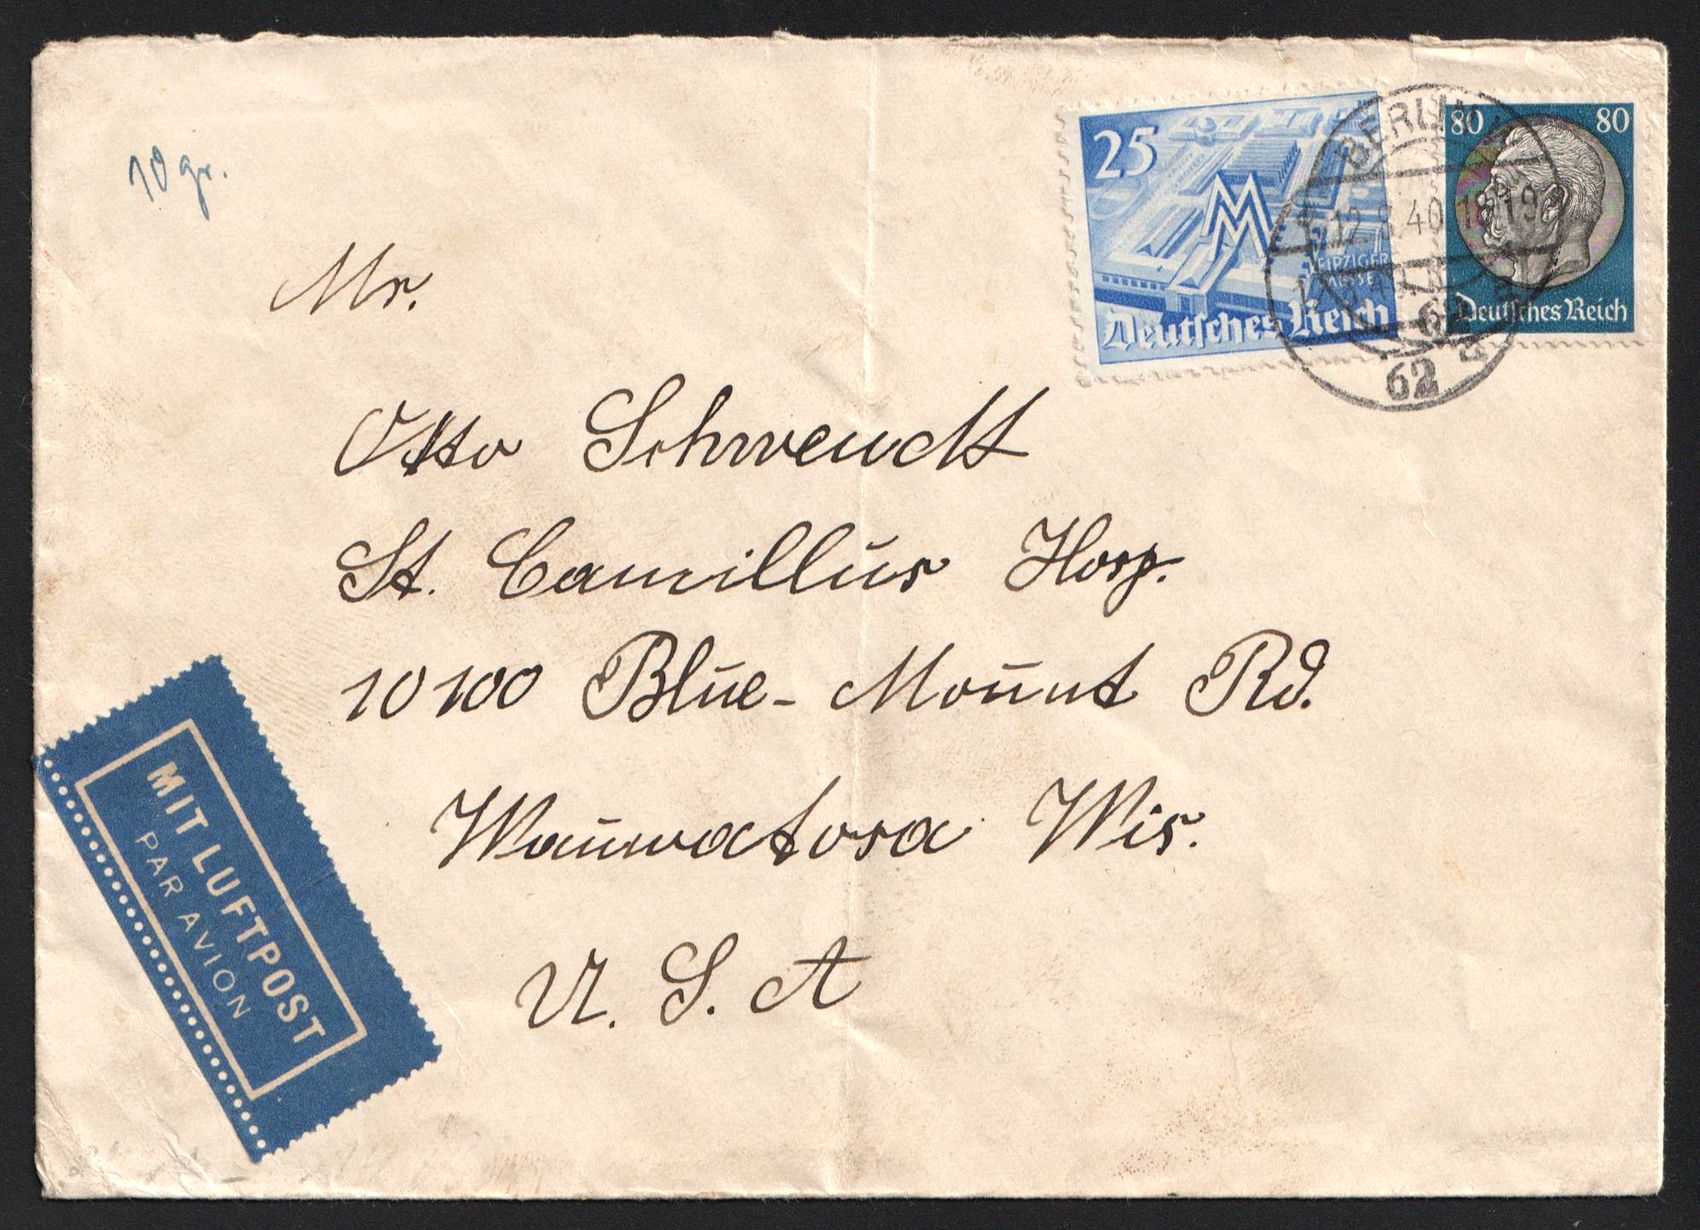 10 gr.
25
LEIPZIGER
MESSE
Deutsches Reich
80 80
Deutsches Reich
BERLIN
12.8.40
62
Mr.
Otto Schwendt
St. Camillus Hosp.
10100 Blue-Mount Rd.
Wauwatosa Wis.
U. S. A
MIT LUFTPOST
PAR AVION